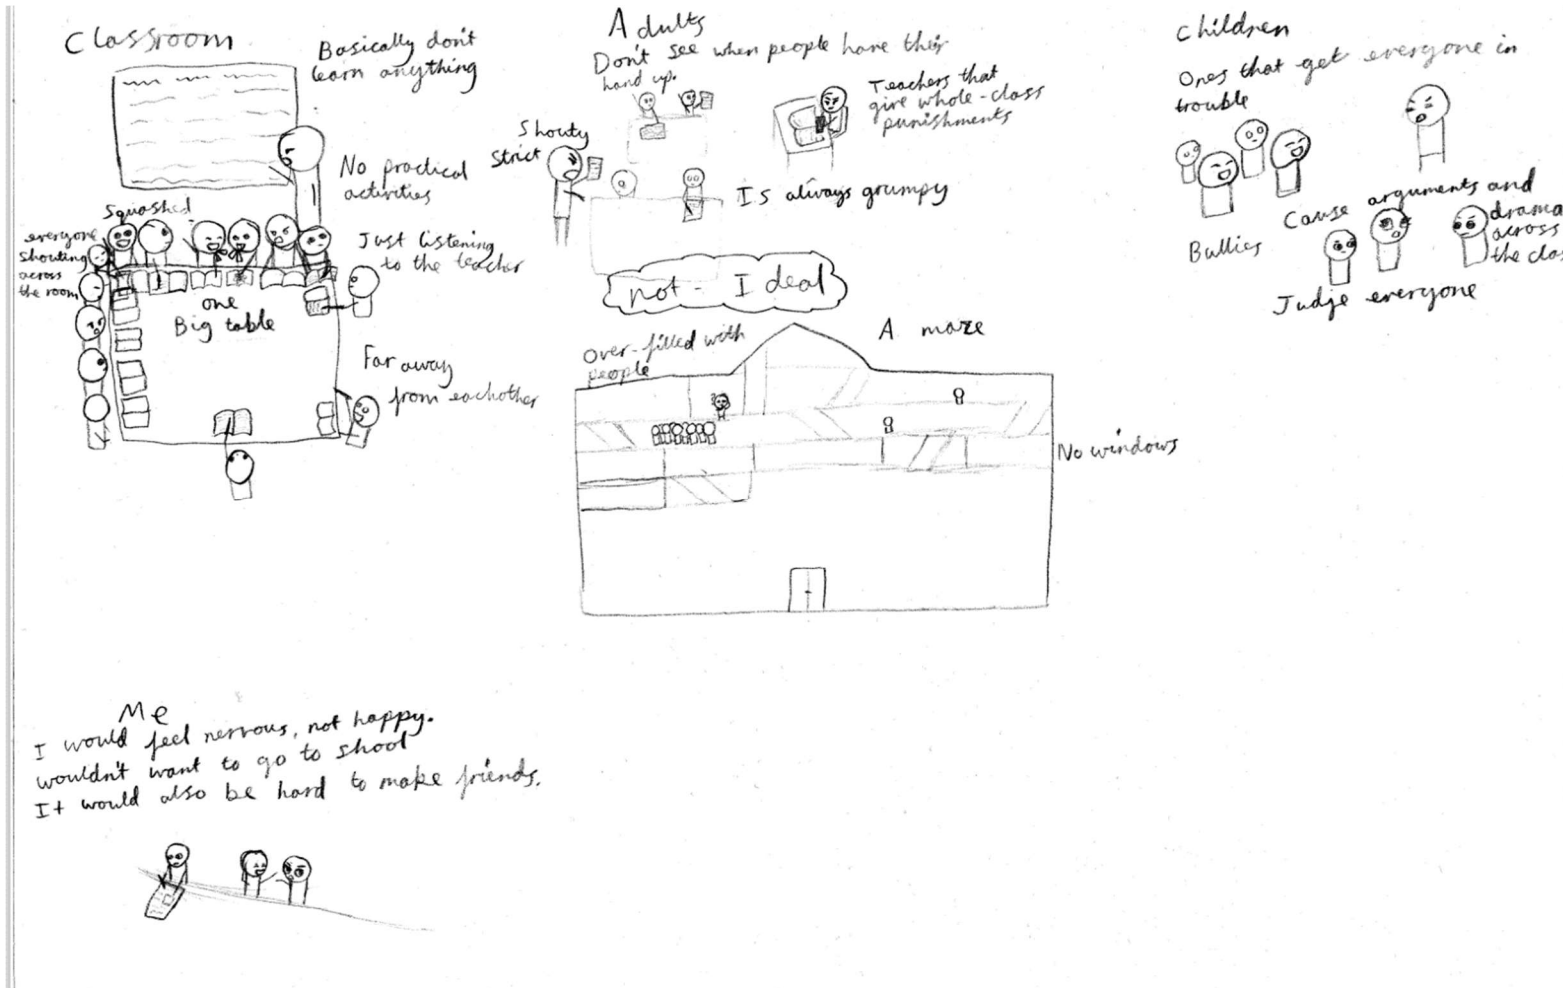 Classroom
Basically don't
learn anything
No practical
activities
Squashed
everyone
shouting
across
the room
Just listening
to the teacher
one
Big table
Far away
from eachother
Adults
Don't see when people have their
hand up.
Teachers that
give whole-class
punishments
Shouty
Strict
Is always grumpy
not - Ideal
Over-filled with
people
A maze
No windows
Children
Ones that get everyone in
trouble
Bullies
Cause arguments and
drama
across
the clas
Judje everyone
Me
I would feel nervous, not happy.
wouldn't want to go to shool
It would also be hard to make friends.